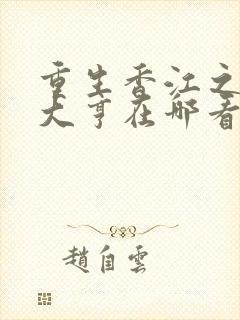 重生香江之
大亨在哪看
趙自雲